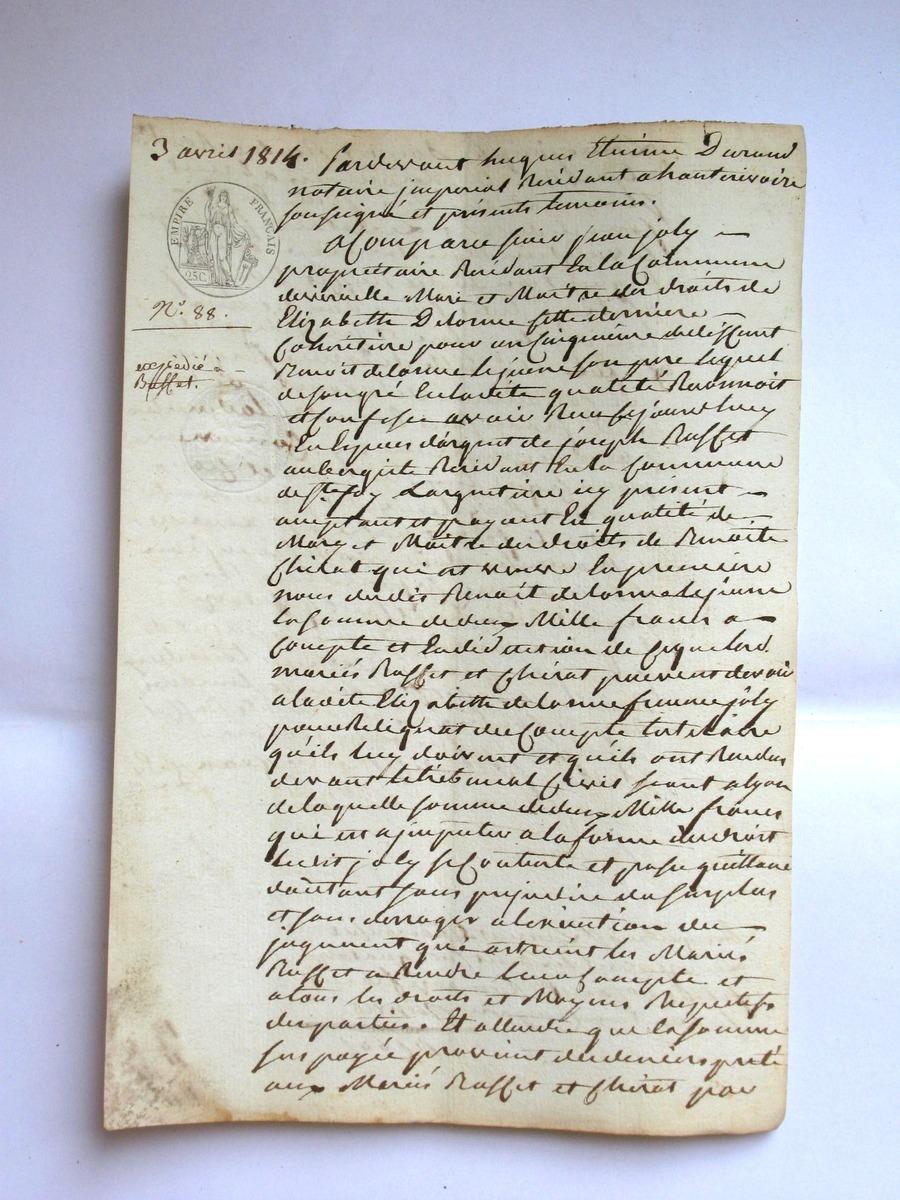 3 avril 1814.
EMPIRE FRANÇAIS
25C.
N.º 88.
expédié à
Buffet.
Pardevant hugues Etienne Durand
notaire jmperial Résidant a hauterivoire
soussigné et présents temoins.
a Comparu sieur jean joly
propriettaire Residant En la Commune
de Mari et Maitre des droits de
Elizabette Delorme cette dernière
Cohéritière pour un Cinquième de déffunt
Benoit delorme le jeune son pere lequel
de son gré En ladite qualité Reconnoit
et Confesse avoir Reçu cejourd'huy
En Espèces d'argent de joseph Buffet
aubergiste Residant En la Commune
de Ste foy Largentière icy présent
acceptant et payant En qualité de
Mary et Maitre des droits de Benoite
Chirat qui est veuve En premiere
noces dudit Benoit delorme Lejeune
la Somme de deux Mille francs a
Compte et En déduction de Ce que lesd.
mariés Buffet et Chirat peuvent devoir
a ladite Elizabette delorme femme joly
pour Reliquat du Compte tutelaire
qu'ils luy doivent et qu'ils ont Rendus
devant le tribunal Civil séant a lyon
de laquelle somme de deux Mille francs
qui est a jmputer a la forme du droit
ledit joly se Contente et passe quittance
d'autant sans prejudice du Surplus
et sans derroger a l'exécution du
jugement qui astreint les Mariés
Buffet a Rendre leur Compte et
a tous les droits et Moyens Respectifs
des parties. Et attendu que la somme
sus payée provient des deniers prêté
aux Mariés Buffet et Chirat par